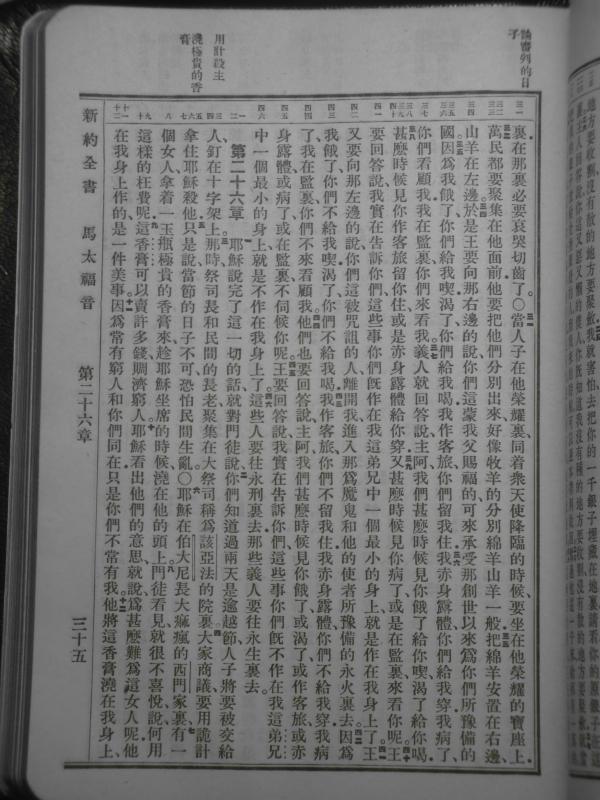 論審判的日子
用計殺主
澆極貴的香膏
裏在那裏必要哀哭切齒了〇當人子在他榮耀裏同着衆天使降臨的時候要坐在他榮耀的寶座上
萬民都要聚集在他面前他要把他們分別出來好像牧羊的分別綿羊山羊一般把綿羊安置在右邊
山羊在左邊於是王要向那右邊的說你們這蒙我父賜福的可來承受那創世以來爲你們所豫備的
國因爲我餓了你們給我喫渴了你們給我喝我作客旅你們留我住我赤身露體你們給我穿我病了
你們看顧我我在監裏你們來看我義人就回答說主阿我們甚麽時候見你餓了給你喫渴了給你喝
甚麽時候見你作客旅留你住或是赤身露體給你穿又甚麽時候見你病了或是在監裏來看你呢王
要回答說我實在告訴你們這些事你們旣作在我這弟兄中一個最小的身上就是作在我身上了王
又要向那左邊的說你們這被咒詛的人離開我進入那爲魔鬼和他的使者所豫備的永火裏去因爲
我餓了你們不給我喫渴了你們不給我喝我作客旅你們不留我住我赤身露體你們不給我穿我病
了我在監裏你們不來看顧我他們也要回答說主阿我們甚麽時候見你餓了或渴了或作客旅或赤
身露體或病了或在監裏不伺候你呢王要回答說我實在告訴你們這些事你們旣不作在我這弟兄
中一個最小的身上就是不作在我身上了這些人要往永刑裏去那些義人要往永生裏去
第二十六章 耶穌說完了這一切的話就對門徒說你們知道過兩天是逾越節人子將要被交給
人釘在十字架上那時祭司長和民間的長老聚集在大祭司稱爲該亞法的院裏大家商議要用詭計
拿住耶穌殺他只是說當節的日子不可恐怕民間生亂〇耶穌在伯大尼長大痲瘋的西門家裏有一
個女人拿着一玉瓶極貴的香膏來趁耶穌坐席的時候澆在他的頭上門徒看見就很不喜悅說何用
這樣的枉費呢這香膏可以賣許多錢賙濟窮人耶穌看出他們的意思就說爲甚麽難爲這女人呢他
在我身上作的是一件美事因爲常有窮人和你們同在只是你們不常有我他將這香膏澆在我身上
新約全書 馬太福音 第二十六章 三十五